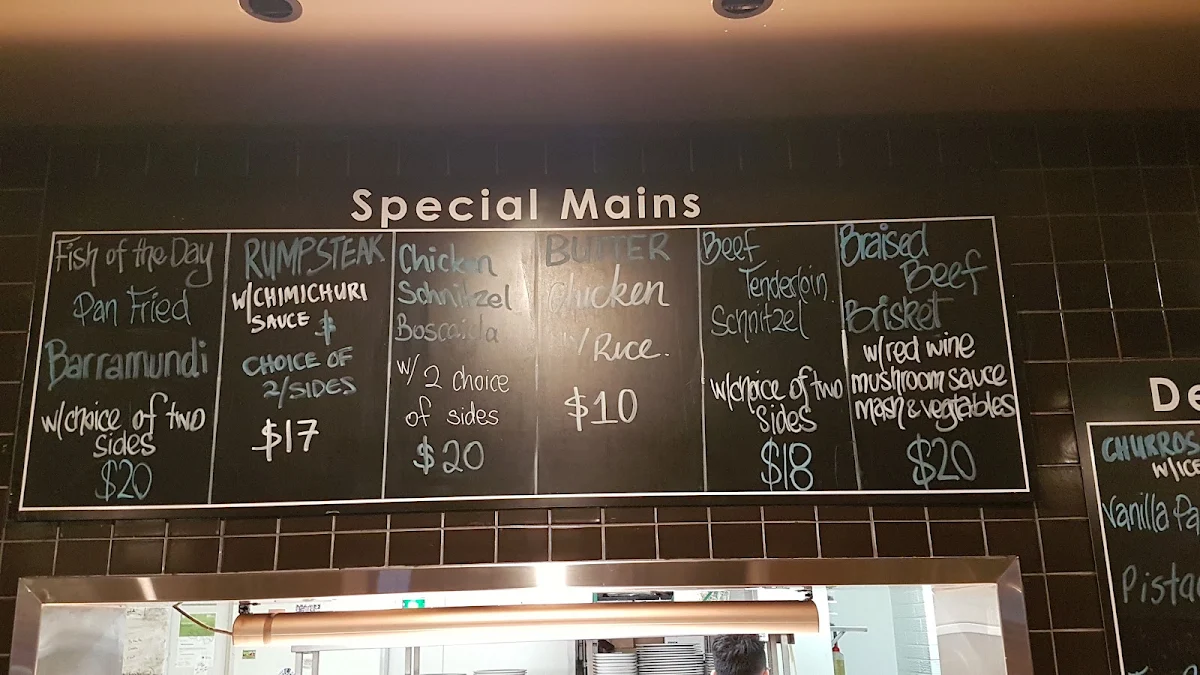 Special Mains
Fish of the Day
Pan Fried
Barramundi
w/choice of two
sides
$20
RUMPSTEAK
W/CHIMICHURI
SAUCE $
CHOICE OF
2/SIDES
$17
Chicken
Schnitzel
Boscaiola
w/ 2 choice
of sides
$20
BUTTER
Chicken
w/ Rice.
$10
Beef
Tenderloin
Schnitzel
w/choice of two
sides
$18
Braised
Beef
Brisket
w/red wine
mushroom sauce
mash & vegtables
$20
De
CHURROS
w/ICE
Vanilla Pa
Pistac